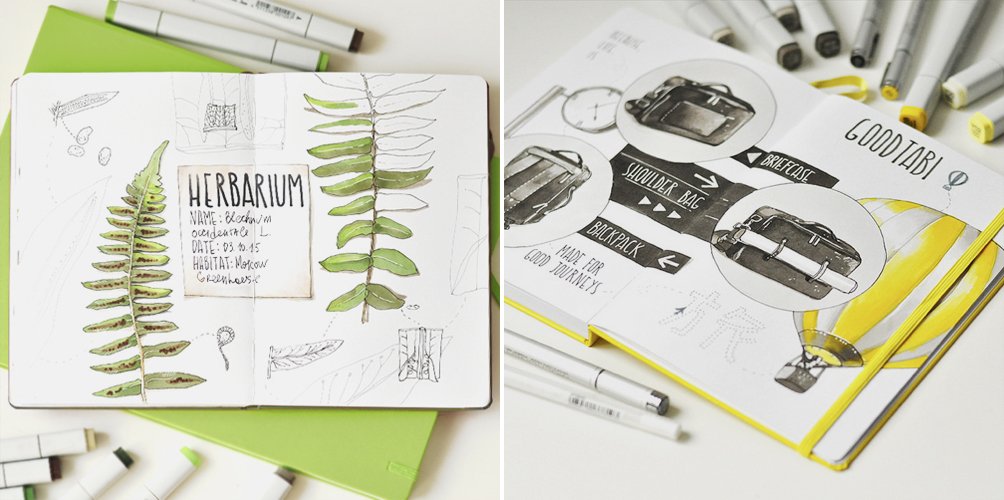 HERBARIUM
NAME: Blechnum
occidentale L.
DATE: 03.10.15
HABITAT: Moscow
Greenhouse
GOODTABI
BRIEFCASE
SHOULDER BAG
BACKPACK
MADE FOR
GOOD JOURNEYS
方尺